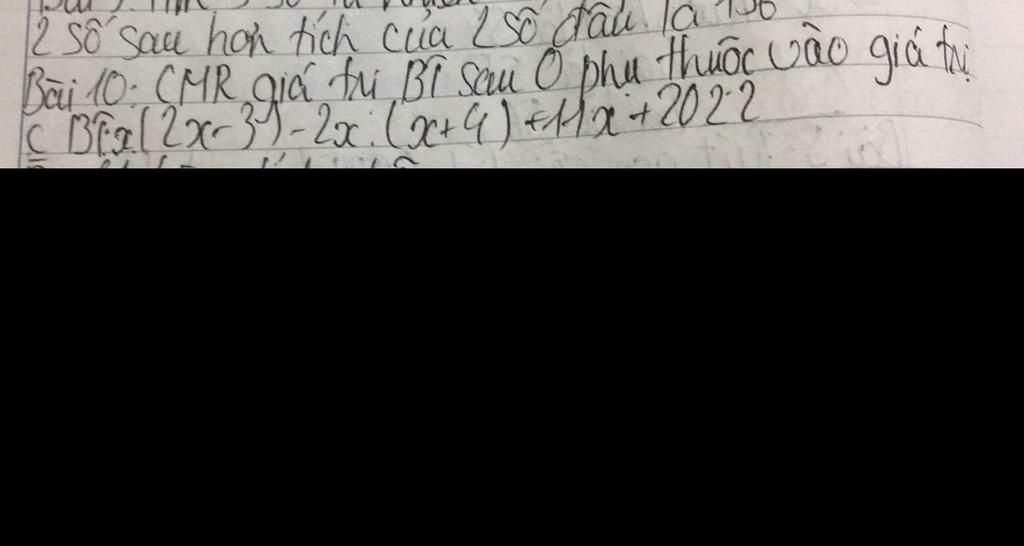 2 số sau hơn tích của 2 số đầu là
Bài 10: CMR giá trị BT sau O phụ thuộc vào giá trị
C BT: x(2x-3)-2x.(x+4)+11x+2022